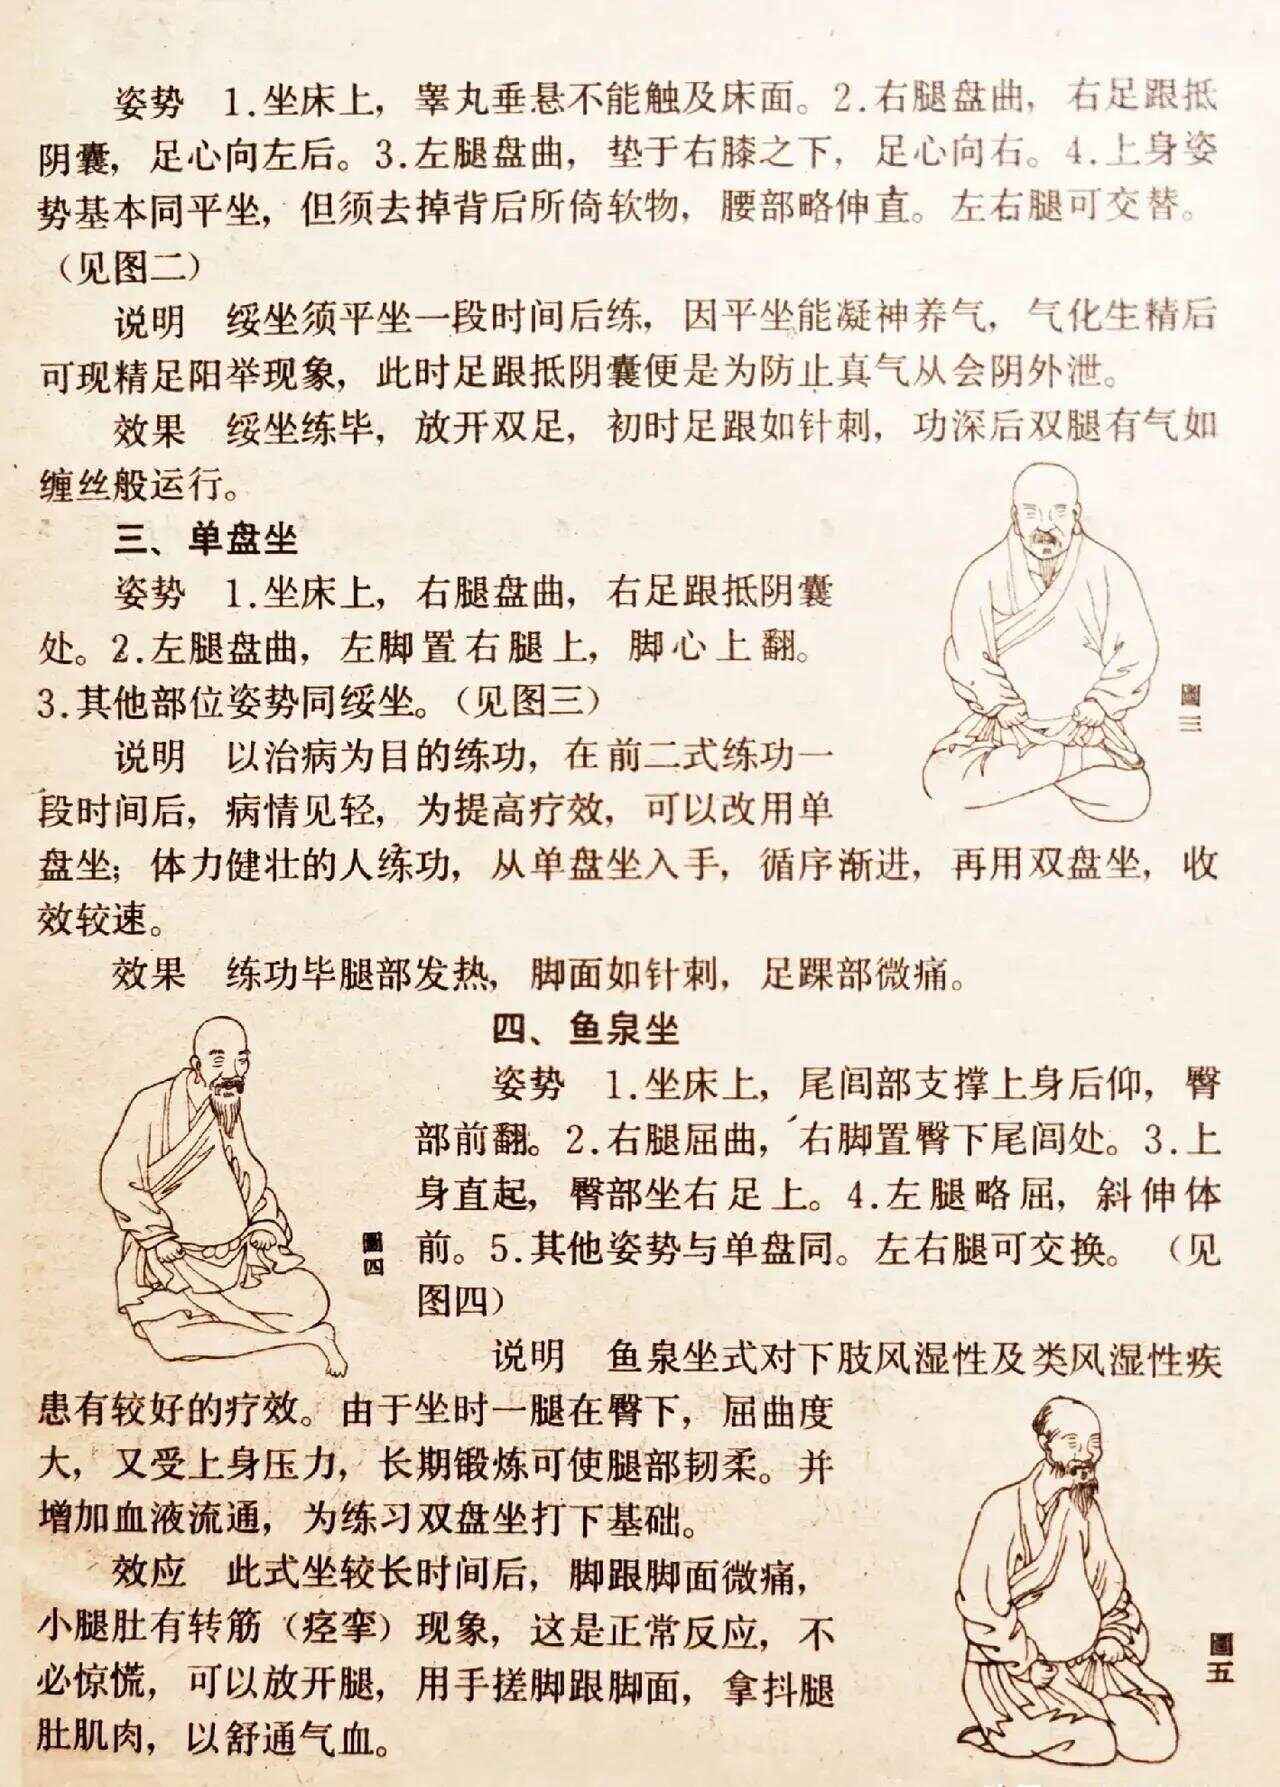 姿势　1.坐床上，睾丸垂悬不能触及床面。2.右腿盘曲，右足跟抵
阴囊，足心向左后。3.左腿盘曲，垫于右膝之下，足心向右。4.上身姿
势基本同平坐，但须去掉背后所倚软物，腰部略伸直。左右腿可交替。
（见图二）
说明　绥坐须平坐一段时间后练，因平坐能凝神养气，气化生精后
可现精足阳举现象，此时足跟抵阴囊便是为防止真气从会阴外泄。
效果　绥坐练毕，放开双足，初时足跟如针刺，功深后双腿有气如
缠丝般运行。
三、单盘坐
姿势　1.坐床上，右腿盘曲，右足跟抵阴囊
处。2.左腿盘曲，左脚置右腿上，脚心上翻。
3.其他部位姿势同绥坐。（见图三）
圖三
说明　以治病为目的练功，在前二式练功一
段时间后，病情见轻，为提高疗效，可以改用单
盘坐；体力健壮的人练功，从单盘坐入手，循序渐进，再用双盘坐，收
效较速。
效果　练功毕腿部发热，脚面如针刺，足踝部微痛。
四、鱼泉坐
姿势　1.坐床上，尾闾部支撑上身后仰，臀
部前翻。2.右腿屈曲，右脚置臀下尾闾处。3.上
身直起，臀部坐右足上。4.左腿略屈，斜伸体
前。5.其他姿势与单盘同。左右腿可交换。（见
图四）
圖四
说明　鱼泉坐式对下肢风湿性及类风湿性疾
患有较好的疗效。由于坐时一腿在臀下，屈曲度
大，又受上身压力，长期锻炼可使腿部韧柔。并
增加血液流通，为练习双盘坐打下基础。
效应　此式坐较长时间后，脚跟脚面微痛，
小腿肚有转筋（痉挛）现象，这是正常反应，不
必惊慌，可以放开腿，用手搓脚跟脚面，拿抖腿
肚肌肉，以舒通气血。
圖五